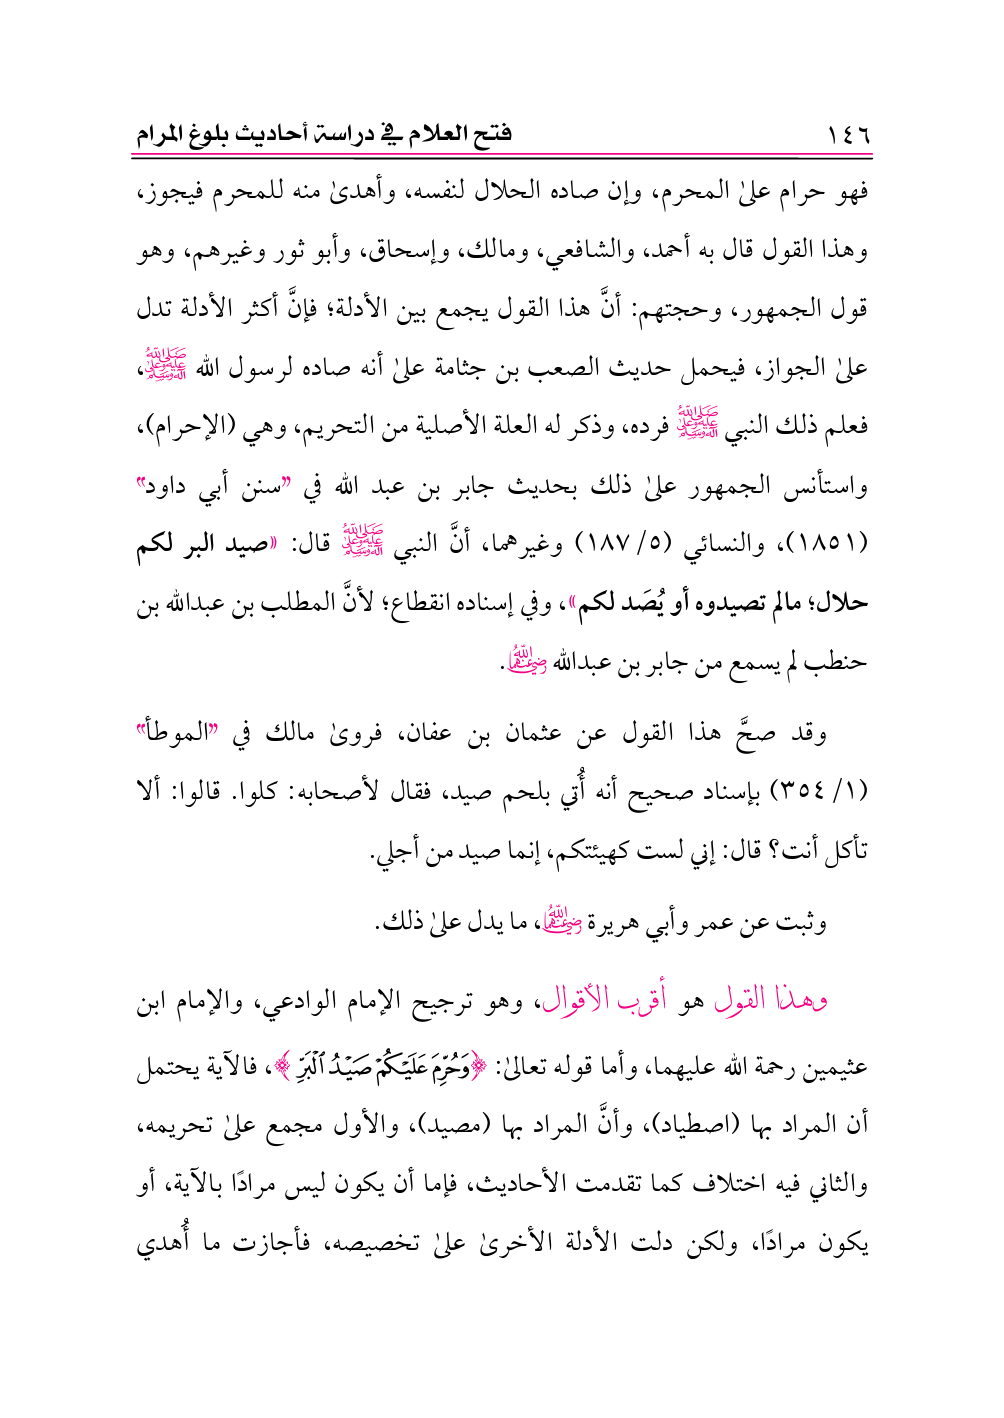 ١٤٦ فتح العلام في دراسة أحاديث بلوغ المرام
فهو حرام علىٰ المحرم، وإن صاده الحلال لنفسه، وأهدىٰ منه للمحرم فيجوز،
وهذا القول قال به أحمد، والشافعي، ومالك، وإسحاق، وأبو ثور وغيرهم، وهو
قول الجمهور، وحجتهم: أنَّ هذا القول يجمع بين الأدلة؛ فإنَّ أكثر الأدلة تدل
علىٰ الجواز، فيحمل حديث الصعب بن جثامة علىٰ أنه صاده لرسول الله ﷺ،
فعلم ذلك النبي ﷺ فرده، وذكر له العلة الأصلية من التحريم، وهي (الإحرام)،
واستأنس الجمهور علىٰ ذلك بحديث جابر بن عبد الله في "سنن أبي داود"
(١٨٥١)، والنسائي (٥/ ١٨٧) وغيرهما، أنَّ النبي ﷺ قال: «صيد البر لكم
حلال؛ مالم تصيدوه أو يُصَد لكم»، وفي إسناده انقطاع؛ لأنَّ المطلب بن عبدالله بن
حنطب لم يسمع من جابر بن عبدالله رضي الله عنهما.
وقد صحَّ هذا القول عن عثمان بن عفان، فروىٰ مالك في "الموطأ"
(١/ ٣٥٤) بإسناد صحيح أنه أُتي بلحم صيد، فقال لأصحابه: كلوا. قالوا: ألا
تأكل أنت؟ قال: إني لست كهيئتكم، إنما صيد من أجلي.
وثبت عن عمر وأبي هريرة رضي الله عنهما، ما يدل علىٰ ذلك.
وهذا القول هو أقرب الأقوال، وهو ترجيح الإمام الوادعي، والإمام ابن
عثيمين رحمة الله عليهما، وأما قوله تعالىٰ: ﴿وَحُرِّمَ عَلَيْكُمْ صَيْدُ ٱلْبَرِّ﴾، فالآية يحتمل
أن المراد بها (اصطياد)، وأنَّ المراد بها (مصيد)، والأول مجمع علىٰ تحريمه،
والثاني فيه اختلاف كما تقدمت الأحاديث، فإما أن يكون ليس مرادًا بالآية، أو
يكون مرادًا، ولكن دلت الأدلة الأخرىٰ علىٰ تخصيصه، فأجازت ما أُهدي